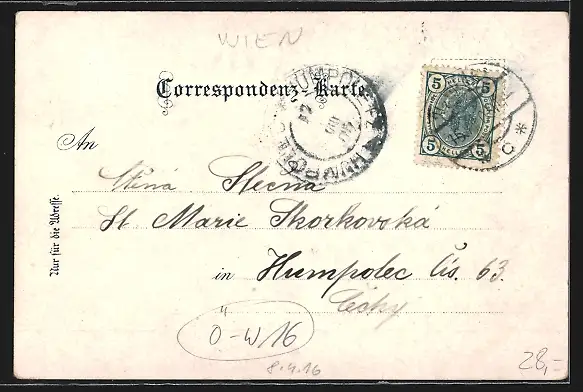 WIEN
Correspondenz-Karte
HUMPOLETZ
HUMPOLEC
5 5
HELLER
5 5
An
Ctěná Slečna
Sl Marie Skorkovská
in Humpolec čis. 63.
Čechy
Nur für die Adresse.
Ö-W16
8.4.16
28,-